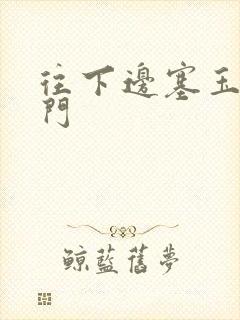 往下邊塞玉
門
鯨藍舊夢